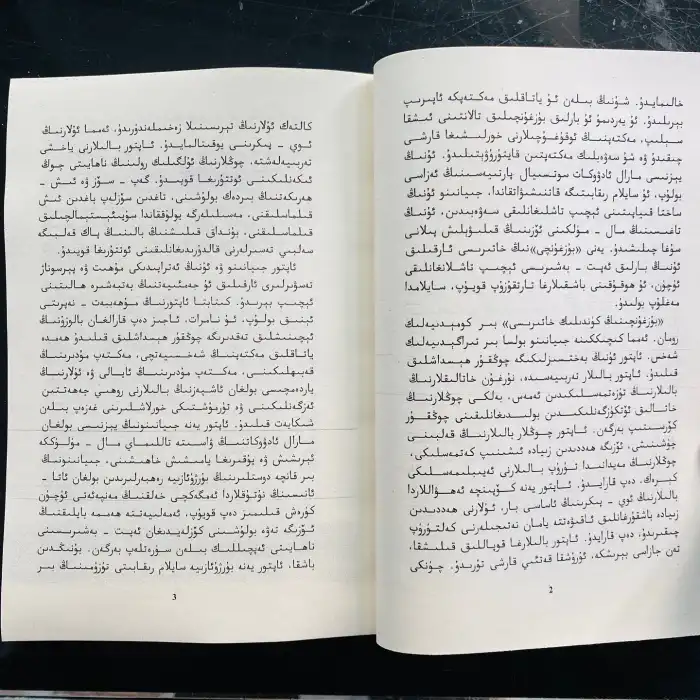 خالىمايدۇ. شۇنىڭ بىلەن ئۇ ياتاقلىق مەكتەپكە ئاپىرىپ
بېرىلىدۇ. ئۇ يەردىمۇ ئۇ بارلىق بۇزغۇنچىلىق تالانتىنى ئىشقا
سېلىپ، مەكتەپنىڭ ئوقۇغۇچىلارنى خورلىشىغا قارشى
چىقىدۇ ۋە شۇ سەۋەبلىك مەكتەپتىن قايتۇرۇۋېتىلىدۇ. ئۇنىڭ
پېزنىسى مارال ئادۋوكات سوتسىيال پارتىيەسىنىڭ ئەزاسى
بولۇپ، ئۇ سايلام رىقابىتىگە قاتنىشىۋاتقاندا، جىيانىنو ئۇنىڭ
ساختا قىياپىتىنى ئېچىپ تاشلىغانلىقى سەۋەبىدىن، ئۇنىڭ
تاغىسىنىڭ مال - مۈلكىنى ئۆزىنىڭ قىلىۋېلىش پىلانى
سۇغا چىلىشىدۇ. يەنى «بۇزغۇنچى»نىڭ خاتىرىسى ئارقىلىق
ئۇنىڭ بارلىق ئەپت - بەشىرىسى ئېچىپ تاشلانغانلىقى
ئۈچۈن، ئۇ ھوقۇقىنى باشقىلارغا تارتقۇزۇپ قويۇپ، سايلامدا
مەغلۇپ بولىدۇ.
«بۇزغۇنچىنىڭ كۈندىلىك خاتىرىسى» بىر كومېدىيەلىك
رومان. ئەمما كىچىككىنە جىيانىنو بولسا بىر تىراگېدىيەلىك
شەخس. ئاپتور ئۇنىڭ بەختسىزلىكىگە چوڭقۇر ھېسداشلىق
قىلىدۇ. ئاپتور بالىلار تەربىيەسىدە، نۇرغۇن خاتالىقلارنىڭ
بالىلارنىڭ تۈزەتمەسلىكىدىن ئەمەس، بەلكى چوڭلارنىڭ
خاتالىق ئۆتكۈزگەنلىكىدىن بولىدىغانلىقىنى چوڭقۇر
كۆرسىتىپ بەرگەن. ئاپتور چوڭلار بالىلارنىڭ قەلبىنى
چۈشىنىشى، ئۆزىگە ھەددىدىن زىيادە ئىشىنىپ كەتمەسلىكى،
چوڭلارنىڭ مەيدانىدا تۇرۇپ بالىلارنى ئەيىبلىمەسلىكى
كېرەك، دەپ قارايدۇ. ئاپتور يەنە كۆپىنچە ئەھۋاللاردا
بالىلارنىڭ ئوي - پىكرىنىڭ ئاساسى بار، ئۇلارنى ھەددىدىن
زىيادە باشقۇرغانلىق ئاقىۋەتتە يامان نەتىجىلەرنى كەلتۈرۈپ
چىقىرىدۇ، دەپ قارايدۇ. ئاپتور بالىلارغا قوپاللىق قىلىشقا،
تەن جازاسى بېرىشكە، ئۇرۇشقا قەتئىي قارشى تۇرىدۇ. چۈنكى
2
كالتەك ئۇلارنىڭ تېرىسىنىلا زەخىملەندۈرىدۇ، ئەمما ئۇلارنىڭ
ئوي - پىكرىنى يوقىتالمايدۇ. ئاپتور بالىلارنى ياخشى
تەربىيەلەشتە، چوڭلارنىڭ ئۈلگىلىك رولىنىڭ ناھايىتى چوڭ
ئىكەنلىكىنى ئوتتۇرىغا قويىدۇ. گەپ - سۆز ۋە ئىش -
ھەرىكەتنىڭ بىردەك بولۇشىنى، تاغدىن سۆزلەپ باغدىن ئىش
قىلماسلىقنى، مەسىلىلەرگە يولۇققاندا سۇيىئىستېمالچىلىق
قىلماسلىقنى، بۇنداق قىلىشنىڭ بالىنىڭ پاك قەلبىگە
سەلبىي تەسىرلەرنى قالدۇرىدىغانلىقىنى ئوتتۇرىغا قويىدۇ.
ئاپتور جىيانىنو ۋە ئۇنىڭ ئەتراپىدىكى مۇھىت ۋە پېرسوناژ
تەسۋىرلىرى ئارقىلىق ئۇ جەمئىيەتنىڭ پەتىبەشىرە ھالىتىنى
ئېچىپ بېرىدۇ. كىتابتا ئاپتورنىڭ مۇھەببەت - نەپرىتى
ئېنىق بولۇپ، ئۇ نامرات، ئاجىز دەپ قارالغان بالوزۇنىڭ
ئېچىنىشلىق تەقدىرىگە چوڭقۇر ھېسداشلىق قىلىدۇ ھەمدە
ياتاقلىق مەكتەپنىڭ شەخسىيەتچى، مەكتەپ مۇدىرىنىڭ
قەبىھلىكىنى، مەكتەپ مۇدىرىنىڭ ئايالى ۋە ئۇلارنىڭ
ياردەمچىسى بولغان ئاشپەزنىڭ بالىلارنى روھىي جەھەتتىن
ئەزگەنلىكىنى ۋە تۇرمۇشتىكى خورلاشلىرىنى غەزەپ بىلەن
شىكايەت قىلىدۇ. ئاپتور يەنە جىيانىنونىڭ پېزنىسى بولغان
مارال ئادۋوكاتنىڭ ۋاسىتە تاللىماي مال - مۈلۈككە
ئېرىشىش ۋە يۇقىرىغا يامىشىش خاھىشىنى، جىيانىنونىڭ
بىر قانچە دوستلىرىنىڭ بۇرژۇئازىيە رەھبەرلىرىدىن بولغان ئاتا -
ئانىسىنىڭ نۇتۇقلاردا ئەمگەكچى خەلقنىڭ مەنپەئەتى ئۈچۈن
كۈرەش قىلىمىز دەپ قويۇپ، ئەمەلىيەتتە ھەممە بايلىقنىڭ
ئۆزىگە تەۋە بولۇشىنى كۆزلەيدىغان ئەپت - بەشىرىسىنى
ناھايىتى ئەپچىللىك بىلەن سۈرەتلەپ بەرگەن. بۇنىڭدىن
باشقا، ئاپتور يەنە بۇرژۇئازىيە سايلام رىقابىتى تۈزۈمىنىڭ بىر
3